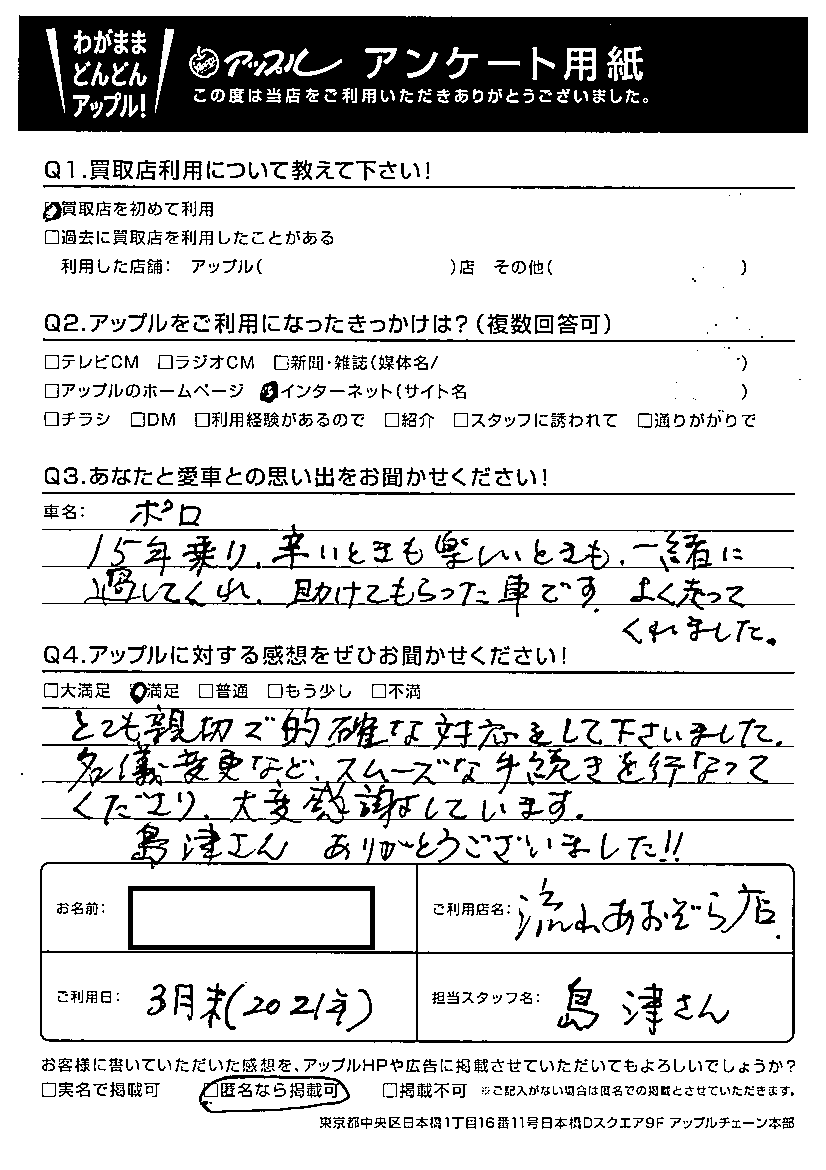 わがまま
どんどん
アップル!
アップル アンケート用紙
この度は当店をご利用いただきありがとうございました。
Q1.買取店利用について教えて下さい!
買取店を初めて利用
□過去に買取店を利用したことがある
利用した店舗: アップル( )店 その他( )
Q2.アップルをご利用になったきっかけは?(複数回答可)
□テレビCM □ラジオCM □新聞・雑誌(媒体名/ )
□アップルのホームページ インターネット(サイト名 )
□チラシ □DM □利用経験があるので □紹介 □スタッフに誘われて □通りがかりで
Q3.あなたと愛車との思い出をお聞かせください!
車名: ポロ
15年乗り、辛いときも楽しいときも、一緒に
過してくれ、助けてもらった車です。よく走って
くれました。
Q4.アップルに対する感想をぜひお聞かせください!
□大満足 満足 □普通 □もう少し □不満
とても親切で的確な対応をして下さいました。
名儀変更など、スムーズな手続きを行なって
くださり、大変感謝しています。
島津さん ありがとうございました!!
お名前:
ご利用店名: 流れあおぞら店
ご利用日: 3月末(2021年)
担当スタッフ名: 島津さん
お客様に書いていただいた感想を、アップルHPや広告に掲載させていただいてもよろしいでしょうか?
□実名で掲載可 □匿名なら掲載可 □掲載不可 ※ご記入がない場合は匿名での掲載とさせていただきます。
東京都中央区日本橋1丁目16番11号日本橋Dスクエア9F アップルチェーン本部